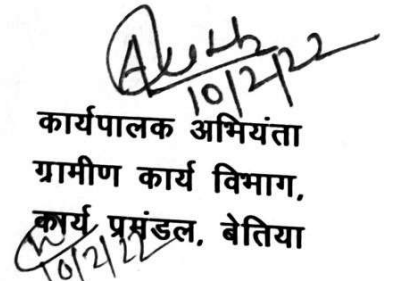 10/2/22
कार्यपालक अभियंता
ग्रामीण कार्य विभाग,
कार्य प्रमंडल, बेतिया
10/2/22